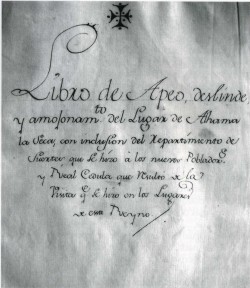 Libro de Apeo, deslinde
y amojonam.to del Lugar de Alhama
la Seca, con inclusion del Repartimiento de
Suertes que se hizo a los nuevos Poblador.s
y Real Cedula que resultó de la
Visita q.e se hizo en los Lugares
de este Reyno